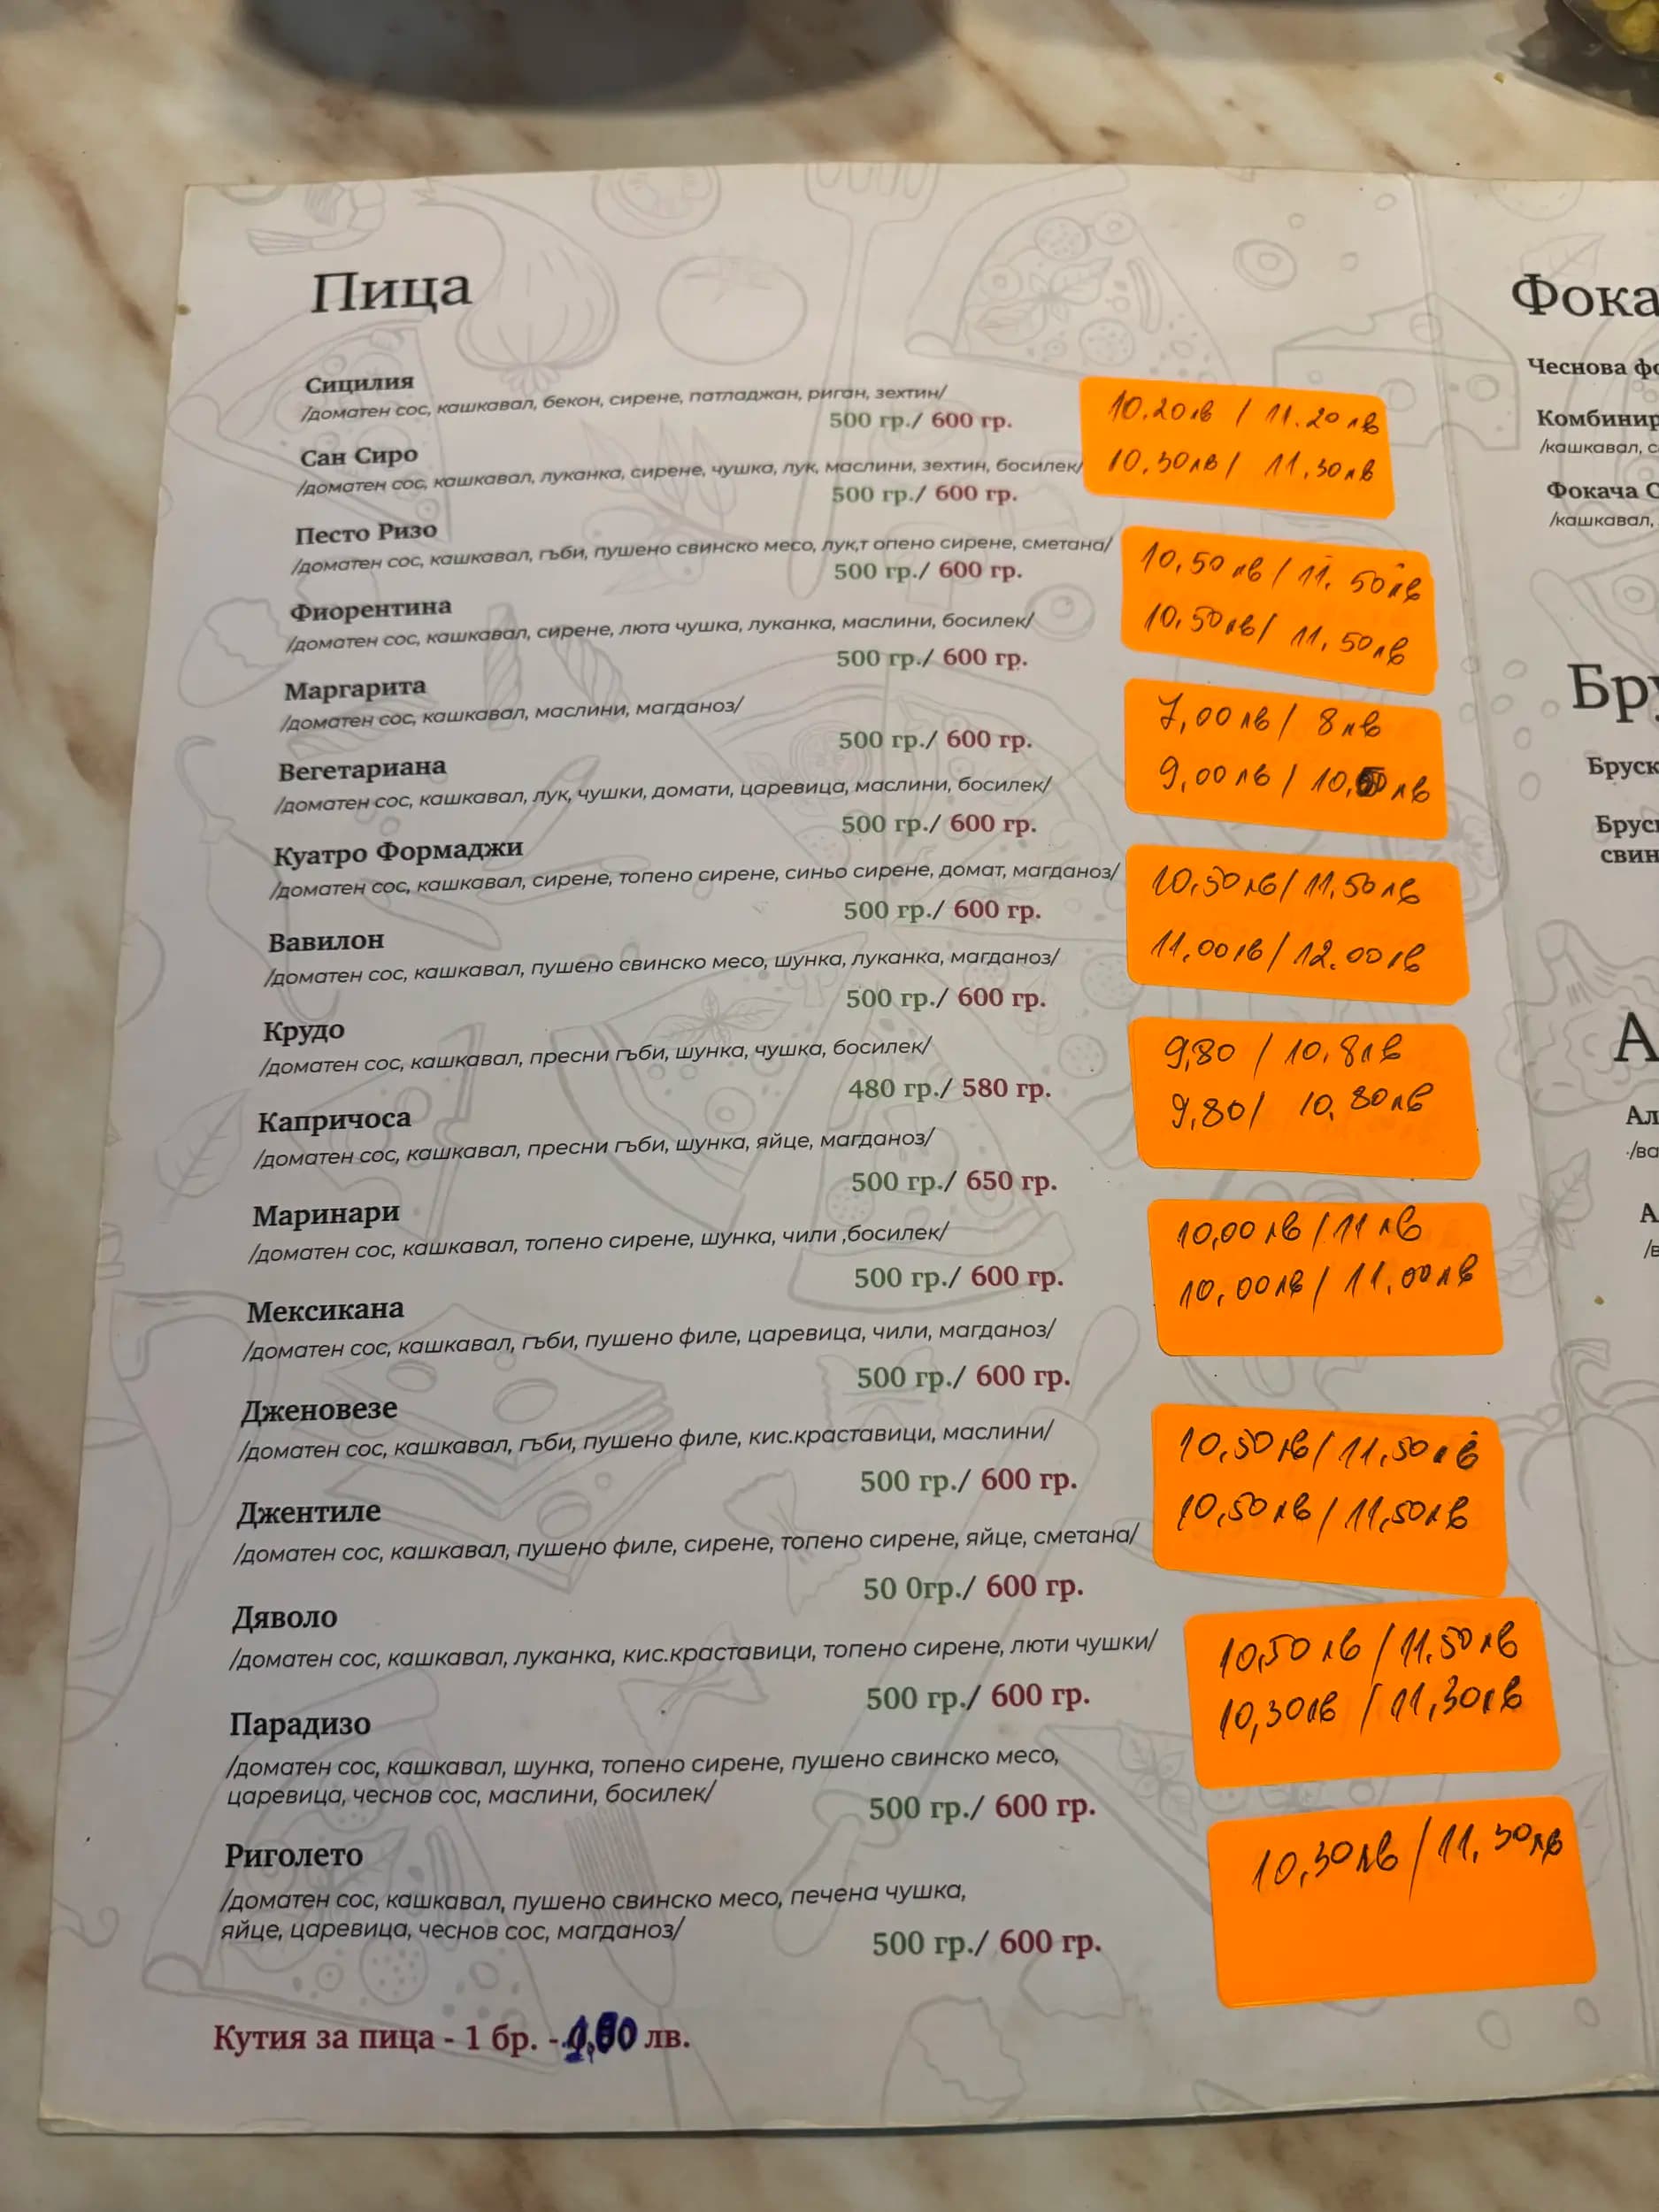 Пица
Сицилия
/доматен сос, кашкавал, бекон, сирене, патладжан, риган, зехтин/
500 гр./ 600 гр.
10.20лв / 11.20лв
Сан Сиро
/доматен сос, кашкавал, луканка, сирене, чушка, лук, маслини, зехтин, босилек/
500 гр./ 600 гр.
10,30лв/ 11,30лв
Песто Ризо
/доматен сос, кашкавал, гъби, пушено свинско месо, лук,т опено сирене, сметана/
500 гр./ 600 гр.
10,50лв/ 11,50лв
Фиорентина
/доматен сос, кашкавал, сирене, люта чушка, луканка, маслини, босилек/
500 гр./ 600 гр.
10,50лв/ 11,50лв
Маргарита
/доматен сос, кашкавал, маслини, магданоз/
500 гр./ 600 гр.
7,00лв/ 8лв
Вегетариана
/доматен сос, кашкавал, лук, чушки, домати, царевица, маслини, босилек/
500 гр./ 600 гр.
9,00лв /
Куатро Формаджи
/доматен сос, кашкавал, сирене, топено сирене, синьо сирене, домат, магданоз/
500 гр./ 600 гр.
10,50лв/ 11,50лв
Вавилон
/доматен сос, кашкавал, пушено свинско месо, шунка, луканка, магданоз/
500 гр./ 600 гр.
11,00лв/ 12.00лв
Крудо
/доматен сос, кашкавал, пресни гъби, шунка, чушка, босилек/
480 гр./ 580 гр.
9,80 / 10,8лв
Капричоса
/доматен сос, кашкавал, пресни гъби, шунка, яйце, магданоз/
500 гр./ 650 гр.
9,80/ 10,80лв
Маринари
/доматен сос, кашкавал, топено сирене, шунка, чили ,босилек/
500 гр./ 600 гр.
10,00лв/ 11лв
Мексикана
/доматен сос, кашкавал, гъби, пушено филе, царевица, чили, магданоз/
500 гр./ 600 гр.
10,00лв/ 11,00лв
Дженовезе
/доматен сос, кашкавал, гъби, пушено филе, кис.краставици, маслини/
500 гр./ 600 гр.
10,50лв/ 11,50лв
Джентиле
/доматен сос, кашкавал, пушено филе, сирене, топено сирене, яйце, сметана/
50 0гр./ 600 гр.
10,50лв/ 11,50лв
Дяволо
/доматен сос, кашкавал, луканка, кис.краставици, топено сирене, люти чушки/
500 гр./ 600 гр.
10,50лв / 11,50лв
Парадизо
/доматен сос, кашкавал, шунка, топено сирене, пушено свинско месо,
царевица, чеснов сос, маслини, босилек/
500 гр./ 600 гр.
10,30лв / 11,30лв
Риголето
/доматен сос, кашкавал, пушено свинско месо, печена чушка,
яйце, царевица, чеснов сос, магданоз/
500 гр./ 600 гр.
10,30лв / 11,30лв
Кутия за пица - 1 бр. - лв.
Фока
Чеснова фо
Комбинир
/кашкавал, с
Фокача С
/кашкавал,
Бру
Бруск
Брус
свин
А
Ал
/ва
А
/в